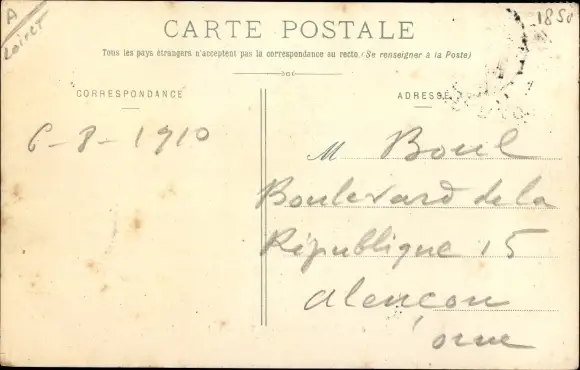 A
Loiret
1850
CARTE POSTALE
Tous les pays étrangers n'acceptent pas la correspondance au recto. (Se renseigner à la Poste)
CORRESPONDANCE
ADRESSE
6-8-1910
M Boul
Boulevard de la
République 15
Alençon
Orne